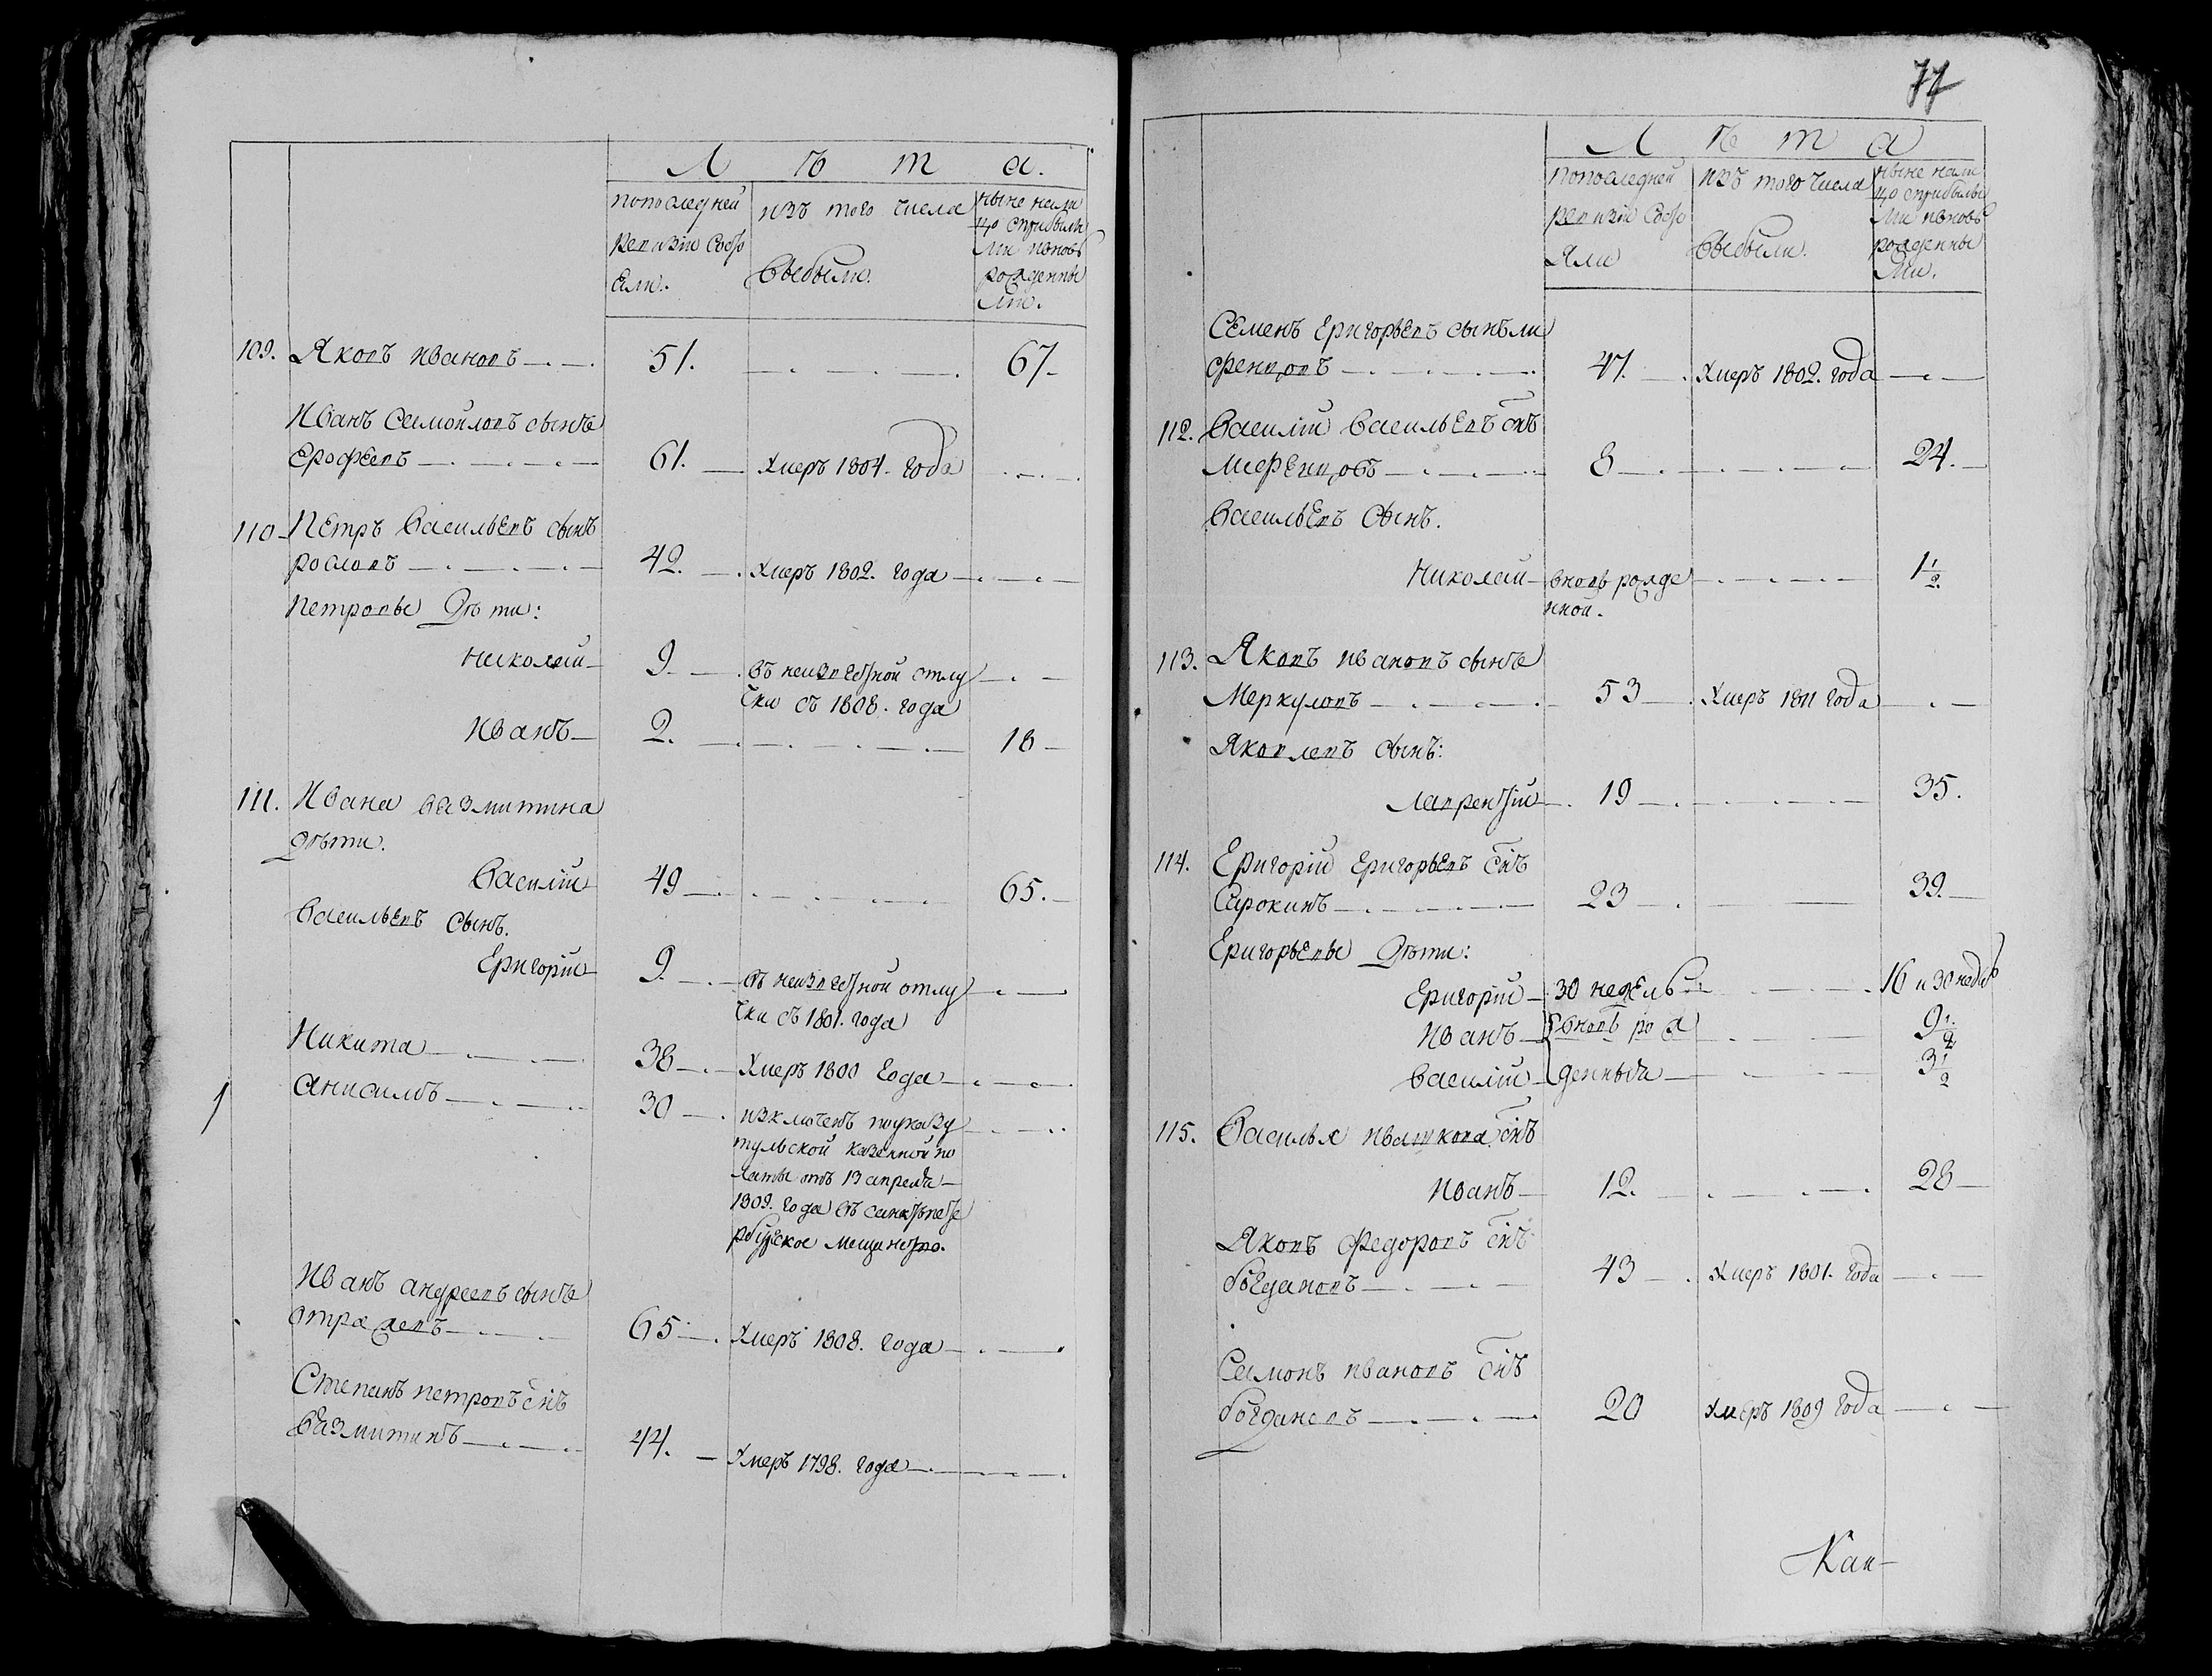 Л ѣ т а.
по последней ревизии состояли. изъ того числа выбыли. ныне нали
цо с прибылы
ми и вновь
рожденны
ми.
109. Яковъ Ивановъ 51. 67
Иванъ Самойловъ сынъ
Ерофеевъ 61. умеръ 1804. года
110 Петръ Васильевъ сынъ
рословъ 42. умеръ 1802. года
Петровы Дѣти:
Николай 9 въ неизвестной отлу
чки съ 1808. года
Иванъ 2. 18
111. Ивана вазмитина
дѣти.
Василий 49 65.
Васильевъ сынъ.
Григорий 9 въ неизвестной отлу
чки съ 1801. года
Никита 38 умеръ 1800 года
Анисимъ 30 изключенъ по указу
тульской казенной по
латы отъ 13 апреля
1809. года въ санктъпете
рбургское мещанство.
Иванъ андреевъ сынъ
65 умеръ 1808. года
Степанъ петровъ снъ
вазмитинъ 44. умеръ 1798. года
77
Л ѣ т а
по последней
ревизии Состо
яли
изъ того числа
выбыли.
ныне нали
цо с прибылы
ми и вновь
рожденны
ми.
Семенъ Григорьевъ сынъ ли
фенцовъ 47. умеръ 1802. года
112. Василий Васильевъ снъ
лифенцовъ 8 24.
Васильевъ Сынъ.
Николай вновь рожде
нной. 1 1/2
113. Яковъ ивановъ сынъ
Меркуловъ 53 умеръ 1811 года
Яковлевъ сынъ:
лаврентий 19 35.
114. Григорий Григорьевъ снъ
Сарокинъ 23 39.
Григорьевы Дѣти:
Григорий 30 недель 16 и 30 недѣль
Иванъ вновь рож 9 1/2
василий денныя 3 1/2
115. Василья ивашкова снъ
Иванъ 12. 28
Яковъ Федоровъ снъ
богдановъ 43 умеръ 1801. года
Самонъ ивановъ снъ
богдановъ 20 умеръ 1809 года
Кан-